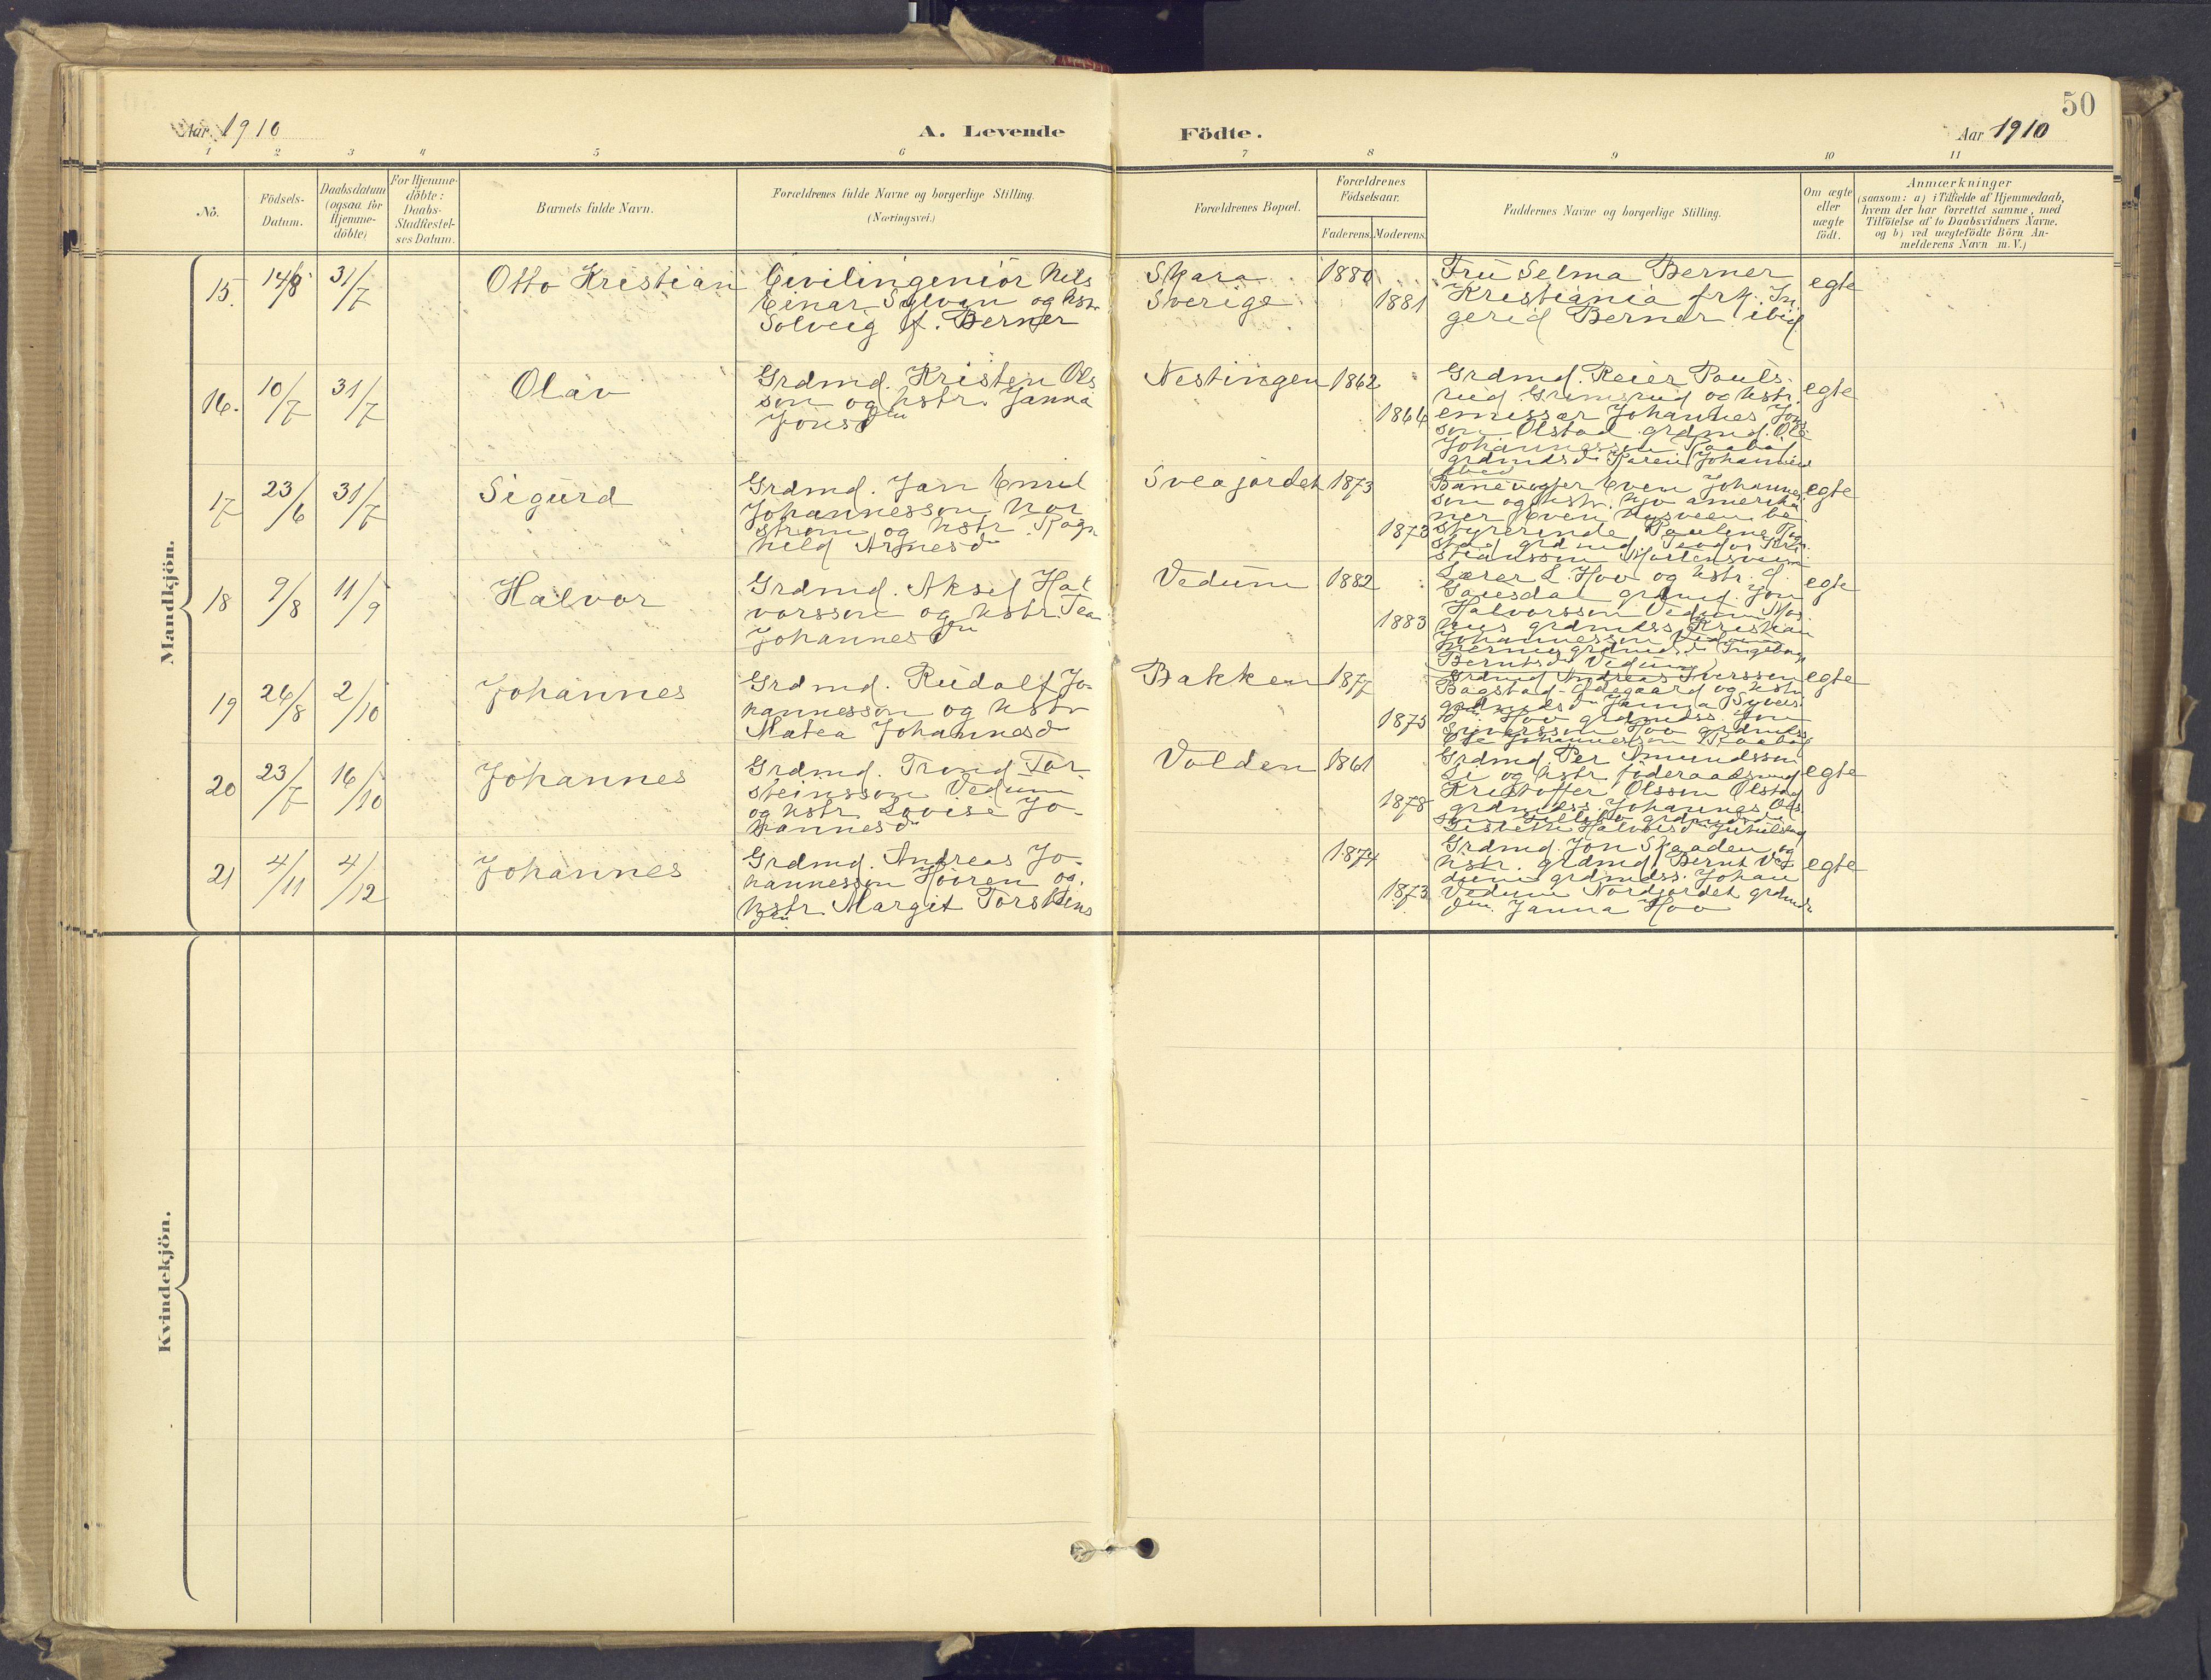 50
Aar 1910
A. Levende Födte.
Aar 1910
1 2 3 4 5 6 7 8 9 10 11
No.
Födsels-
Datum.
Daabsdatum
(ogsaa for
Hjemme-
döbte)
For Hjemme-
döbte:
Daabs-
Stadfæstel-
ses Datum.
Barnets fulde Navn.
Forældrenes fulde Navne og borgerlige Stilling.
(Næringsvei.)
Forældrenes Bopæl.
Forældrenes
Födselsaar.
Faderens. Moderens.
Faddernes Navne og borgerlige Stilling.
Om ægte
eller
uægte
födt.
Anmærkninger
(saasom: a) i Tilfælde af Hjemmedaab,
hvem der har forrettet samme, med
Tilföielse af to Daabsvidners Navne.
og b) ved uægtefödte Börn An-
melderens Navn m. V.)
Mandkjön.
15. 31/7 Otto Kristian
Civilingeniör Nils
Einar Sylvan og hstr.
Solveig f. Berner
Skara
Sverige
1880
1881
Fru Selma Berner
Kristiania frk. In
gerid Berner ibid
egte
16. 10/7 31/7 Olav
Grdmd. Kristen Ols
son og hstr. Janna
Jonsdtr
Nestingen 1862
1866
Grdmd. Reier Pouls-
rud Grimsrud og hstr.
emissær Johannes Jons
son Olstad grdmd. Ole
Johannessen Raabøl
grdmdsd. Karen Johannesd
ibid
egte
17 23/6 31/7 Sigurd
Grdmd. Jan Emil
Johannesson Nor
ström og hstr. Ragn
hild Arnesd
Sveajordet 1873
1873
Banevogter Even Johannes
son og hstr. amerika
ner Even Nysveen be
styrerinde Pauline
stad grdmd. Teodor Kri
stiansson Mortensveen
egte
18 9/8 11/9 Halvor
Grdmd. Aksel Hal
vorsson og hstr. Tea
Johannesdtr
Vedum 1882
1883
Lærer L. Hov og hstr. Ö.
Gausdal grdmd. Jon
Halvorsson Vedum
grdmdss. Kristian
Johannesson
grdmdsd. Ingeborg
Berntsd Vedum
egte
19 26/8 2/10 Johannes
Grdmd. Rudolf Jo-
hannesson og hstr
Matea Johannesd
Bakken 1877
1875
Grdmd Andreas Iversson
Bagstad-Ödegaard og hstr
grdmdsd. Janna Syvers
dtr. Hov grdmdss. Jon
Syversson Hov grdmdss.
Ole Johannesson Raabøl
egte
20 23/7 16/10 Johannes
Grdmd. Trond Tor
steinsson Vedum
og hstr. Lovise Jo-
hannesd
Volden 1861
1878
Grdmd. Per Amundsson
Li og hstr. föderaadsmd
Kristoffer Olsson Olstad
grdmdss. Johannes Ols
son grdmdsd.
Lisbeth Halvorsd
egte
21 4/11 4/12 Johannes
Grdmd. Andreas Jo-
hannesson Höiren og
hstr. Margit Torsteins
dtr.
1874
1873
Grdmd. Jon Skaaden og
hstr. grdmd. Bernt Ve
dum grdmdss. Johan
Vedum Nordjordet grdmds
dtr. Janna Hov
egte
Kvindekjön.